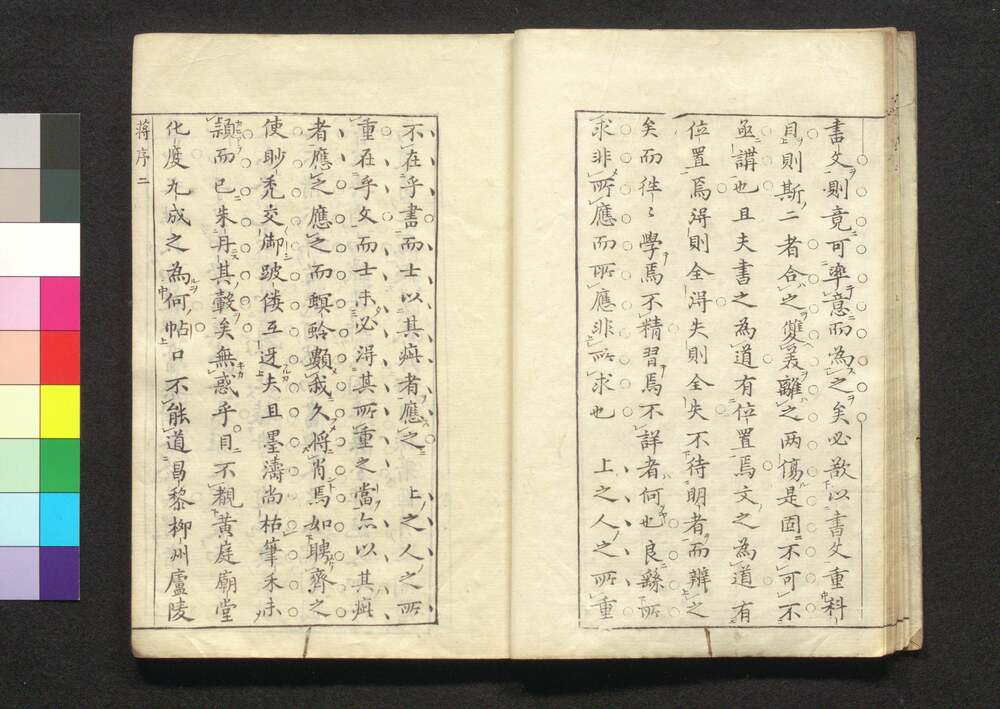 書文則竟可率意而為之矣必欲以書文重科
目則斯二者合之雙美離之两傷是固不可不
亟講也且夫書之為道有位置焉文之為道有
位置焉得則全得失則全失不待明者而辨之
矣而徃〻學焉不精習焉不詳者何也良繇所
求非所應而所應非所求也 上之人之所重
不在乎書而士以其㒇者應之 上之人之所
重在乎文而士未必得其所重之當亦以其㒇
者應之應之而螟蛉顆我久將肖焉如聘齊之
使眇禿交御跛僂互迓夫且墨濤尚枯筆禾未
頴而已朱丹其轂矣無惑乎目不覩黄庭廟堂
化度九成之為何帖口不能道昌黎柳州廬陵
蒋序二